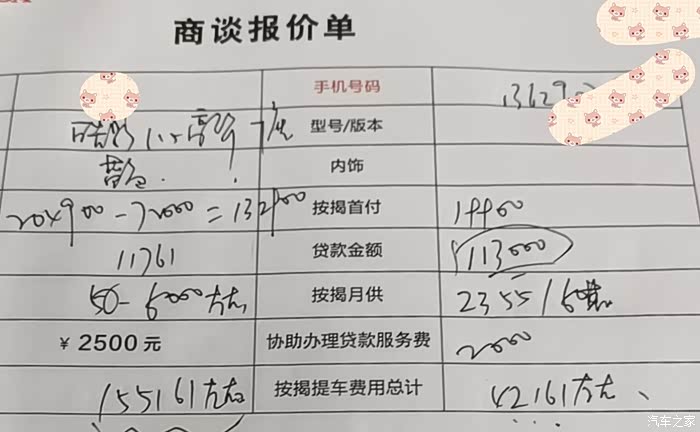 商谈报价单
手机号码 13629
型号/版本
内饰
204900-72000=132900 按揭首付 19900
11761 贷款金额 113000
50-6000左右 按揭月供 2355/60期
¥2500元 协助办理贷款服务费 2000
155161左右 按揭提车费用总计 42161左右、
汽车之家